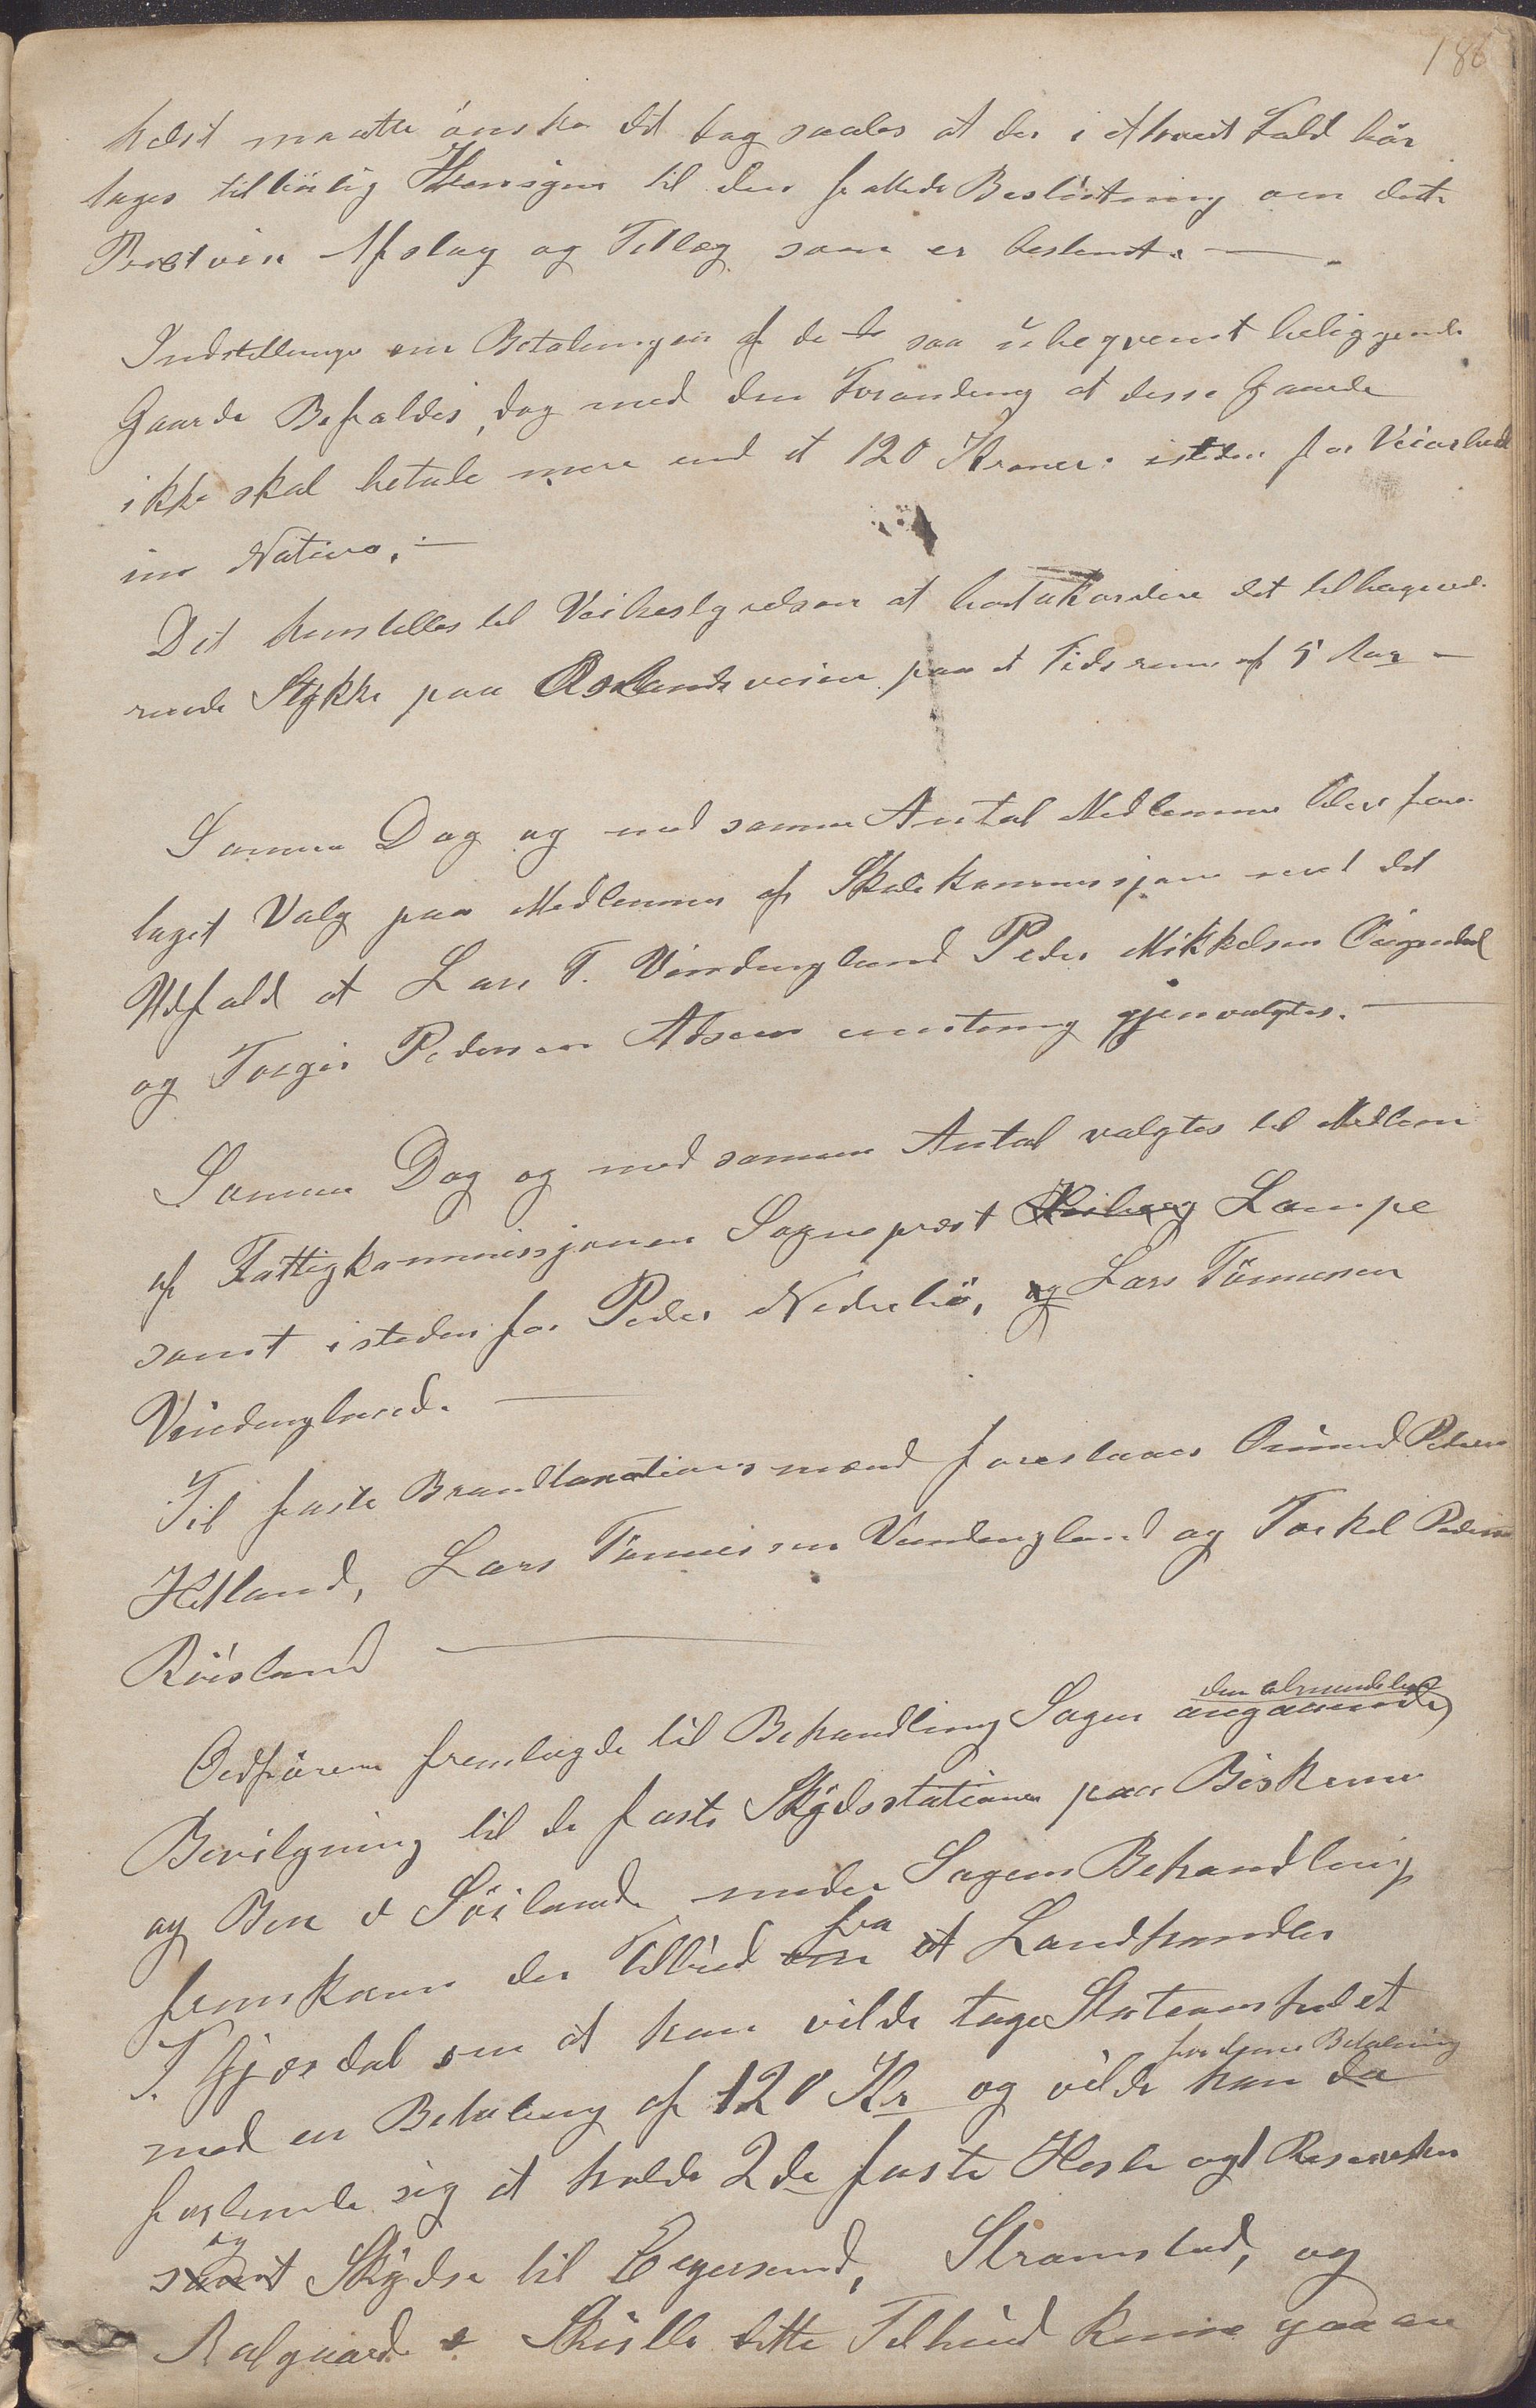 186
helst maatte önske det dog saales at der i ethvert Fald bör
tages tilbörlig Hensigen til den fattede Beslutning om dette
Afslag og Tillæg som er bestemt. —
Indstillinge om Betalingen af de saa ubeqvemt beliggende
Gaarde Befaldes, dog med den Forandring at disse Gaarde
ikke skal betale mere end et 120 Kroner istedn for Veiarbeide
in Natura. —
Det henstilles til Veibestyrelsen at bortakordere det tilbageværende
rende Stykke paa Aslandsveien paa et Tidsrum af 5 Aar —
Samme Dag og med samme Antal Medlemmer blev fore-
taget Valg paa Medlemmer af Skolekommissjonen med det
Udfald at Lars T. Vindingland Peder Mikkelsen
og Torger Pedersen enstemig gjenvalgtes. —
Samme Dag og med samme Antal valgtes til Medlem
af Fattigkommissjonen Sogneprest Lampe
samt isteden for Peder Nedrebö, og Lars Tönnesen
Vindingland. —
Til faste Brandtaxationsmænd foreslaaes Omund Pedersen
Hetland, Lars Tönnesen Vindingland og Torkel Pedersen
Röisland —
Ordföreren fremlagde til Behandling Sagen angaaende den almindelige
Bevilgning til de faste Skydsstationer paa Birkemo
og Bue & Söiland under Sagens Behandling
fremkom der Tilbud om fra at Landhandler
T. Gjesdal om at han vilde tage Stationsholdet
med en Betaling af 120 Kr og vilde han da for denne Betaling
forbinde sig at holde 2de faste Heste og 1 Reservehest
samt og Skydse til Egersund, Stromstad, og
Aalgaard & Skulle dette Tilbud kunne gaa an